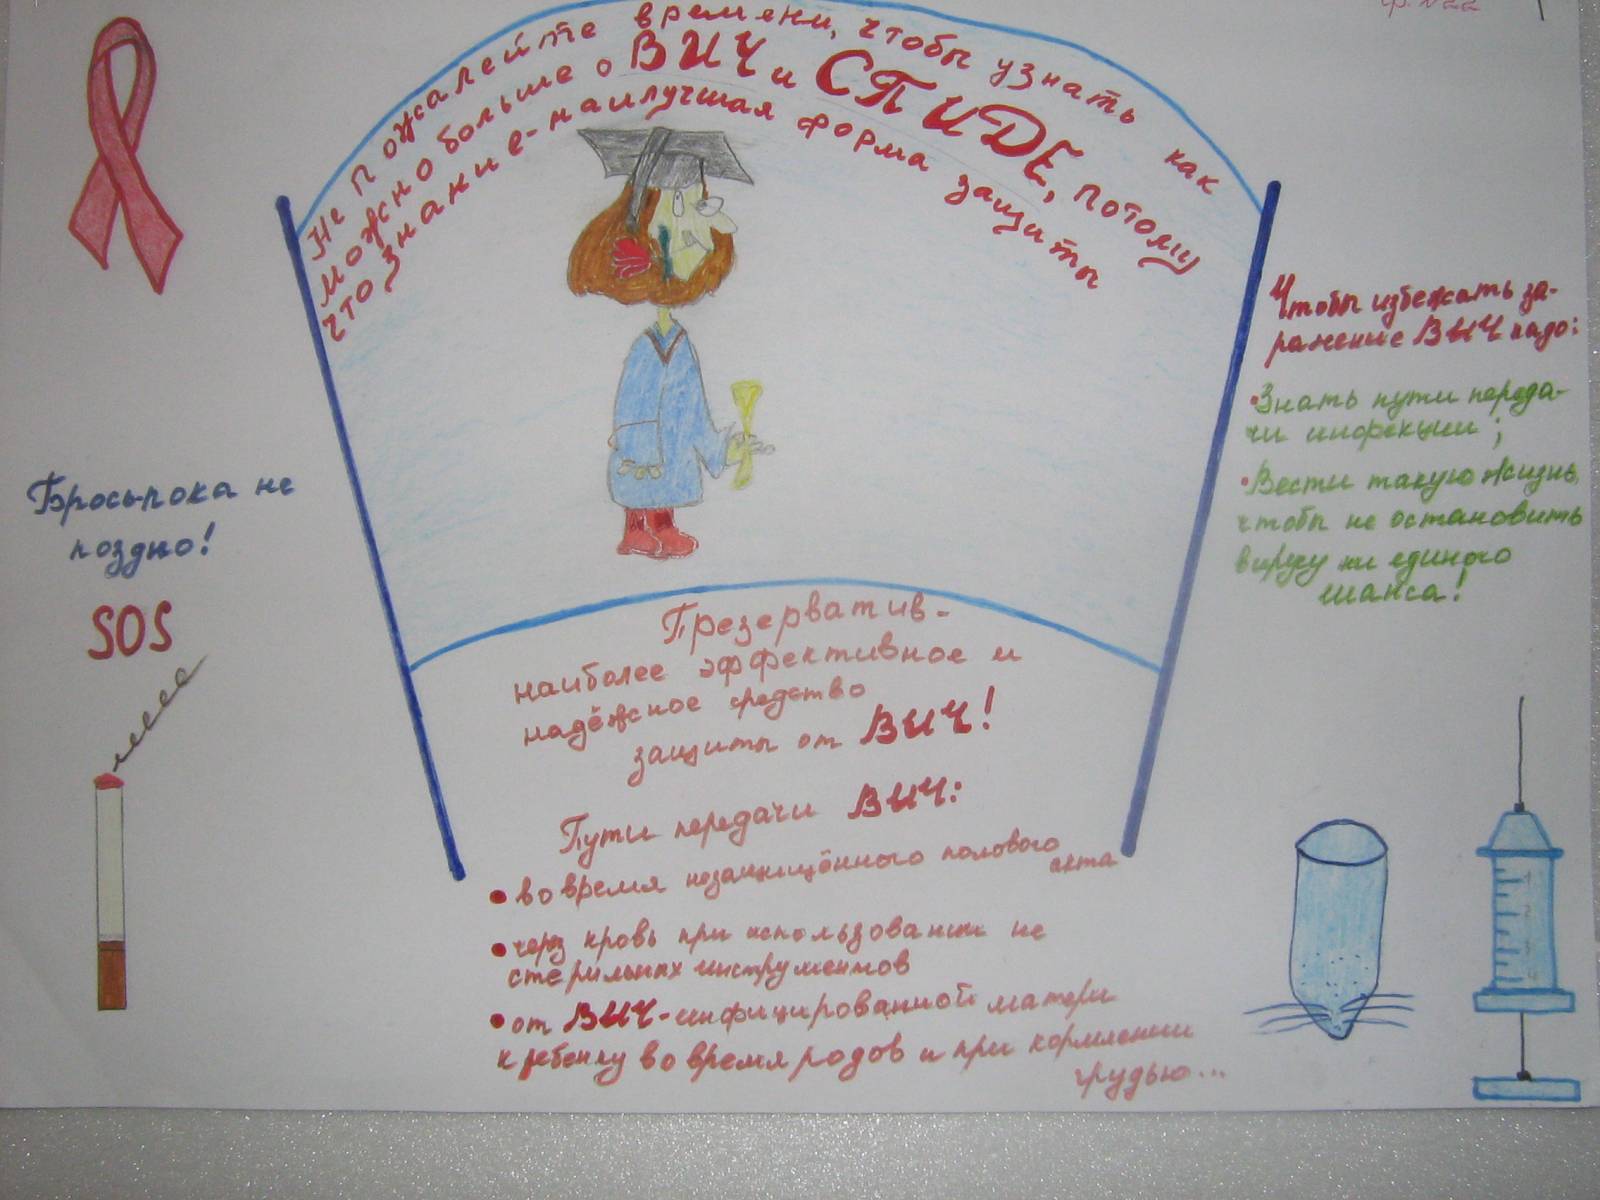 Не пожалейте времени, чтобы узнать как
можно больше о ВИЧ и СПИДЕ, потому
что знание - наилучшая форма защиты
Брось-пока не
поздно!
SOS
Чтобы избежать за-
ражение ВИЧ надо:
•Знать пути переда-
чи инфекции;
•Вести такую жизнь,
чтобы не остановить
вирусу ни единого
шанса!
Презерватив-
наиболее эффективное и
надёжное средство
защиты от ВИЧ!
Пути передачи ВИЧ:
• во время незащищённого полового
акта
• через кровь при использовании не
стерильных инструментов
• от ВИЧ-инфицированной матери
к ребенку во время родов и при кормлении
грудью...